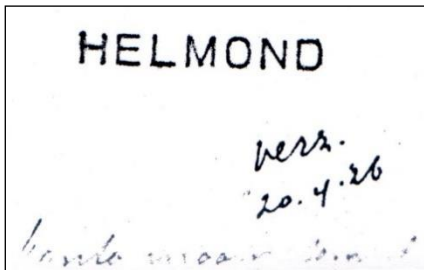 HELMOND
verz.
20.4.26